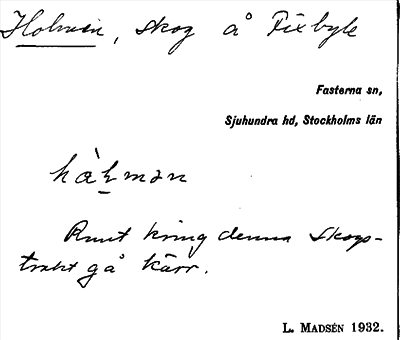 Holmen, skog å Fixbyle
Fasterna sn,
Sjuhundra hd, Stockholms län
hàḻmən
Runt kring denna skogs-
trakt gå kärr.
L. MADSÉN 1932.